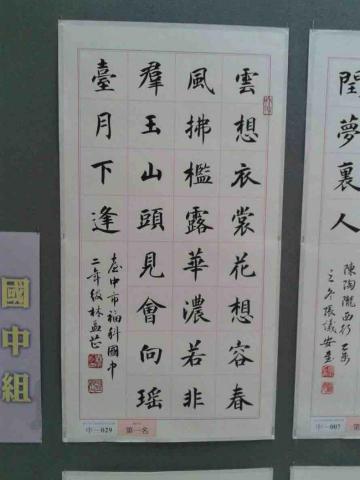 閨夢裏人
陳陶隴西行
雲想衣裳花想容春
風拂檻露華濃若非
羣玉山頭見會向瑤
臺月下逢
臺中市福科國中
二年級林
中-029 第一名
中-007 第
國中組